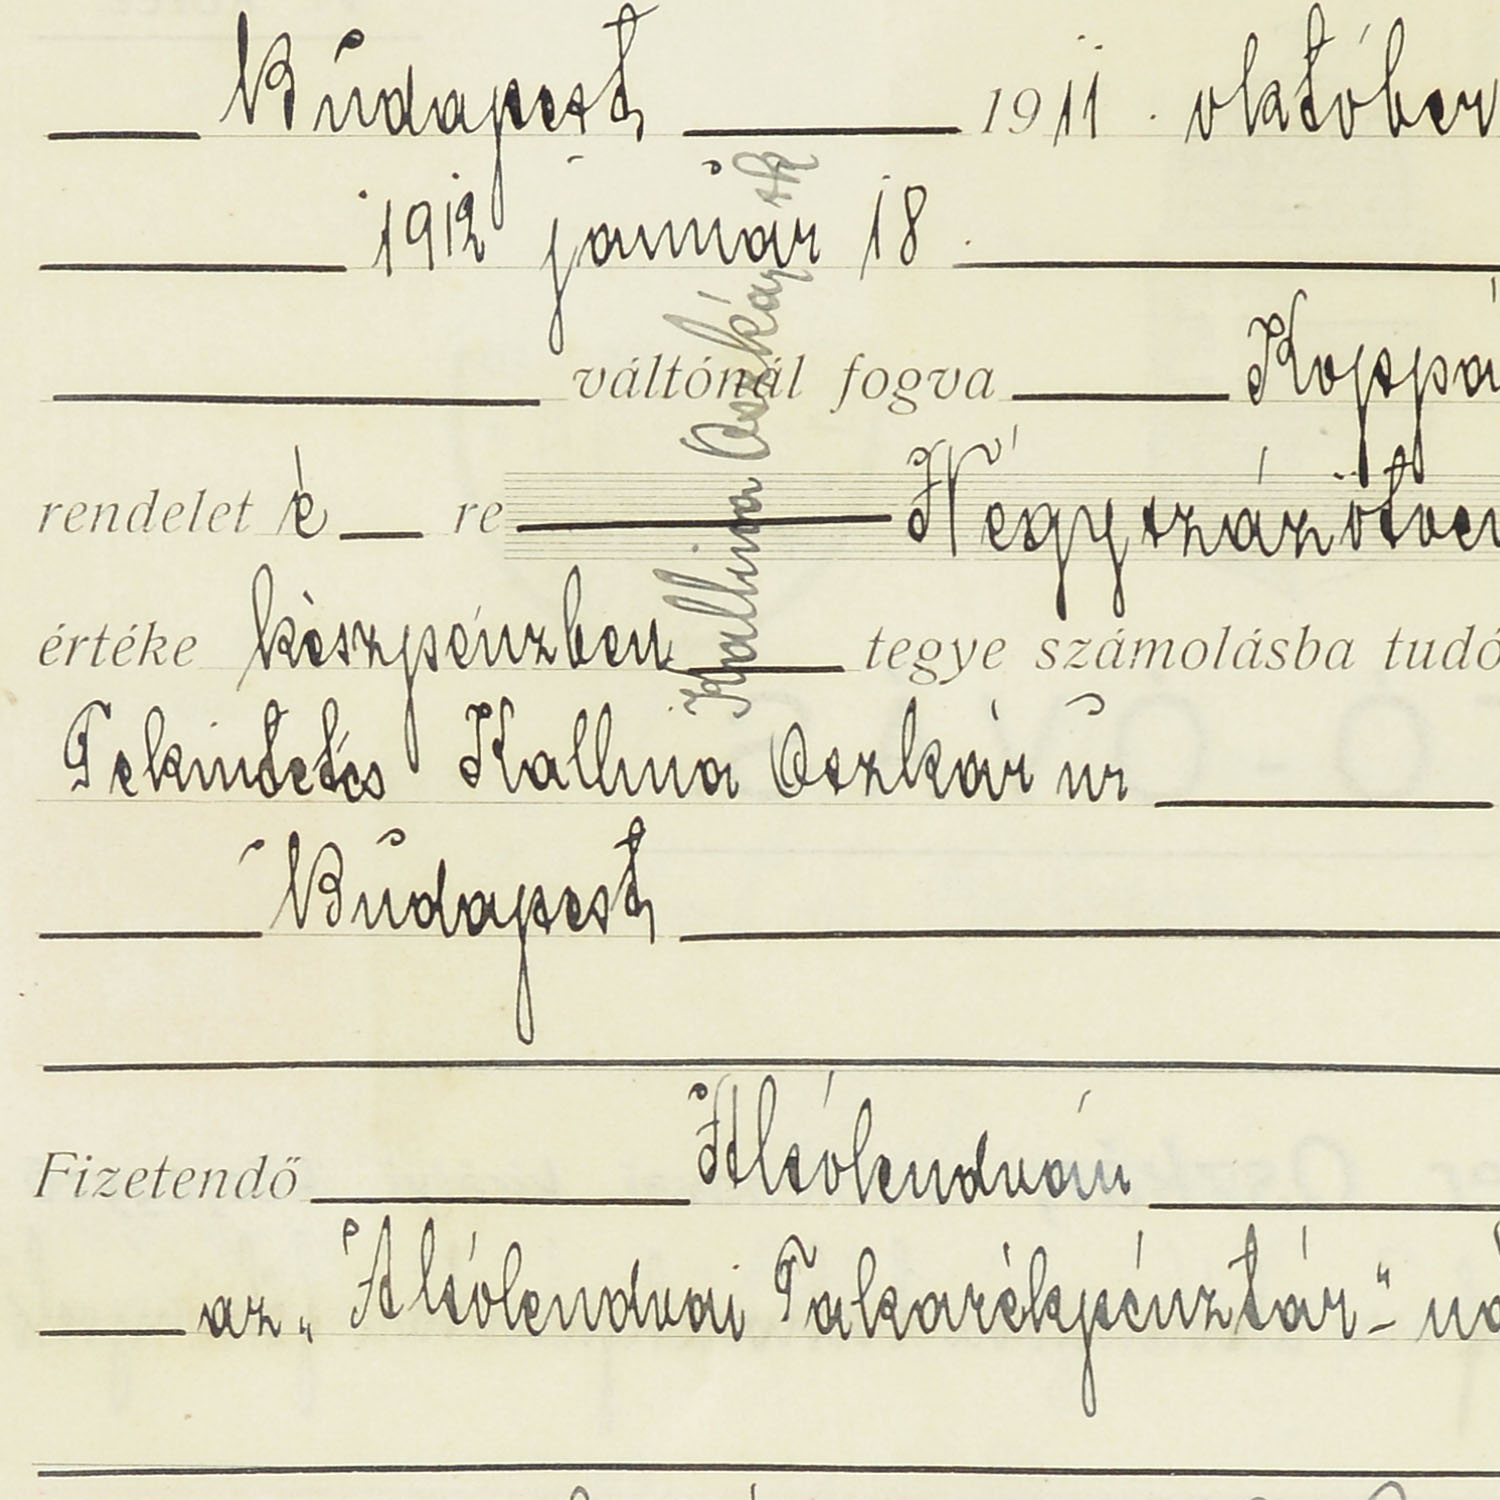 Budapest 1911. október
1912 január 18.
váltónál fogva Koppá
rendelet é re Négyszázötven
értéke készpénzben tegye számolásba tudó
Tekintetes Kallina Oszkár úr
Budapest
Fizetendő Alsólendván
az „Alsólendvai Takarékpénztár"-ná
Kallina Oszkár sk